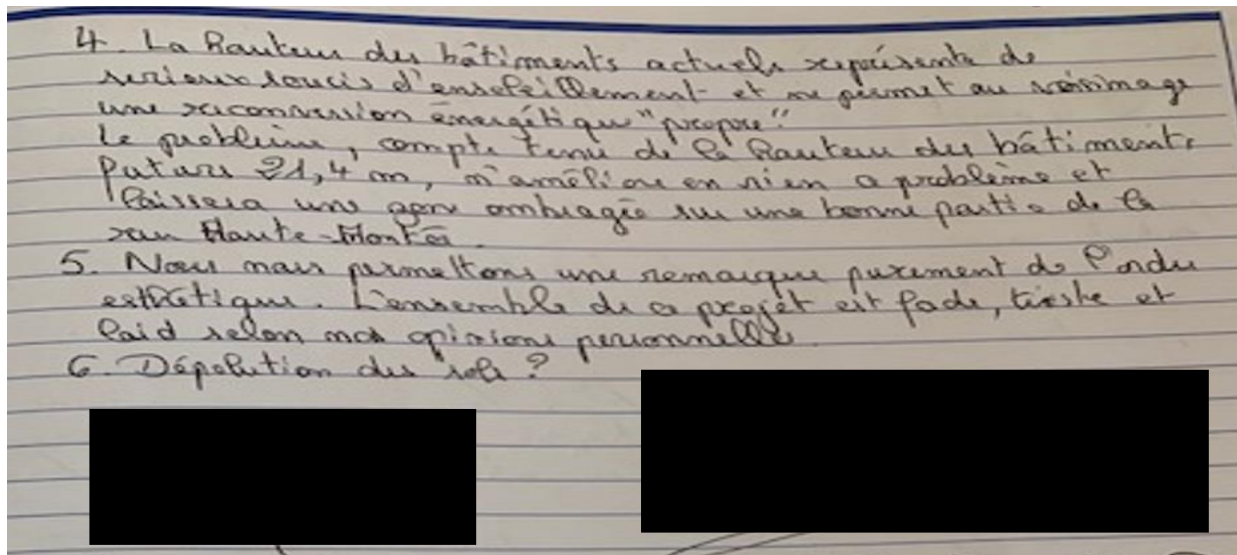 4. La hauteur des bâtiments actuels représente de
serieux soucis d'ensoleillement et ne permet au voisinage
une reconversion énergétique "propre".
Le problème, compte tenu de la hauteur des bâtiments
futurs 21,4 m, n'améliore en rien ce problème et
laissera une zone ombragée sur une bonne partie de la
rue Haute-Montée.
5. Nous nous permettons une remarque purement de l'ordre
esthétique. L'ensemble de ce projet est fade, triste et
laid selon nos opinions personnelles.
6. Dépolution des sols ?